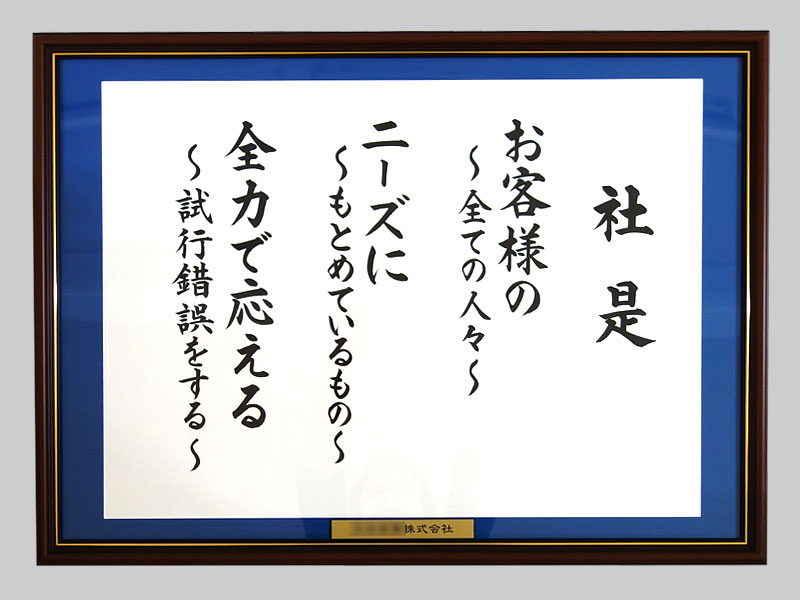 社是
お客様の
～全ての人々～
ニーズに
～もとめているもの～
全力で応える
～試行錯誤をする～
株式会社